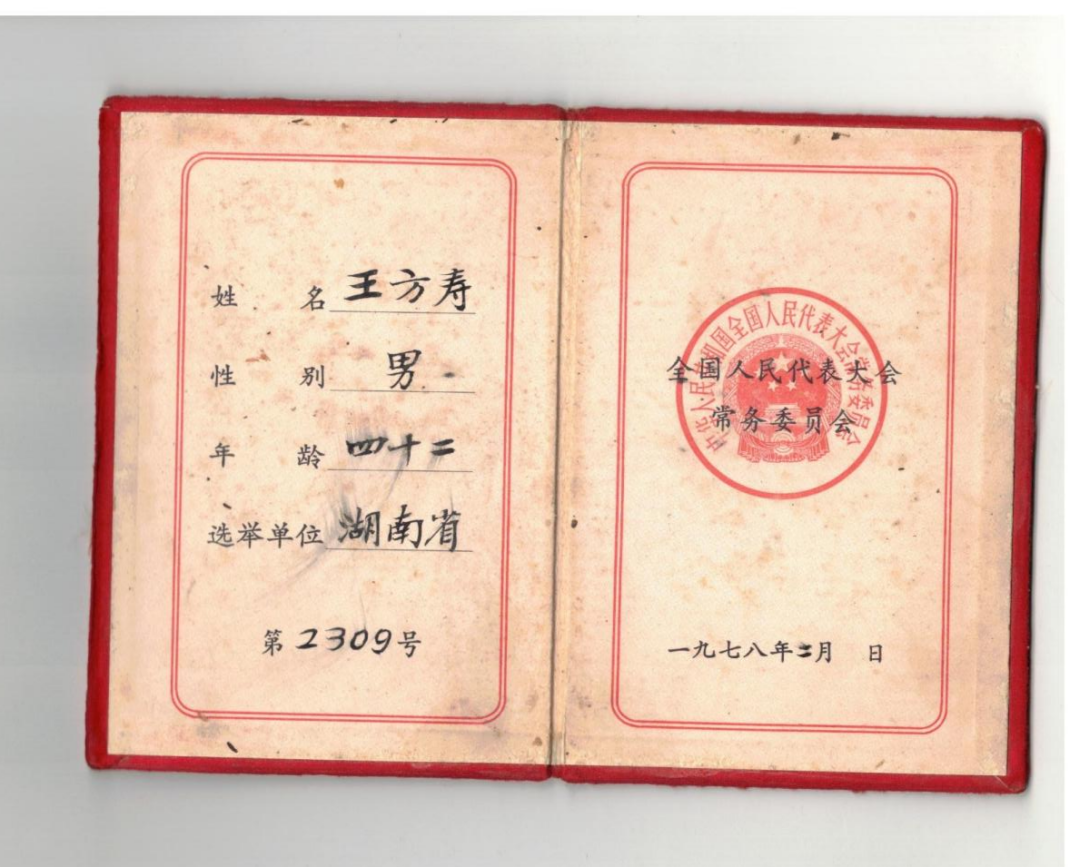 姓 名 王方寿
性 别 男
年 龄 四十二
选举单位 湖南省
第2309号
中华人民共和国全国人民代表大会常务委员会
全国人民代表大会
常务委员会
一九七八年二月 日